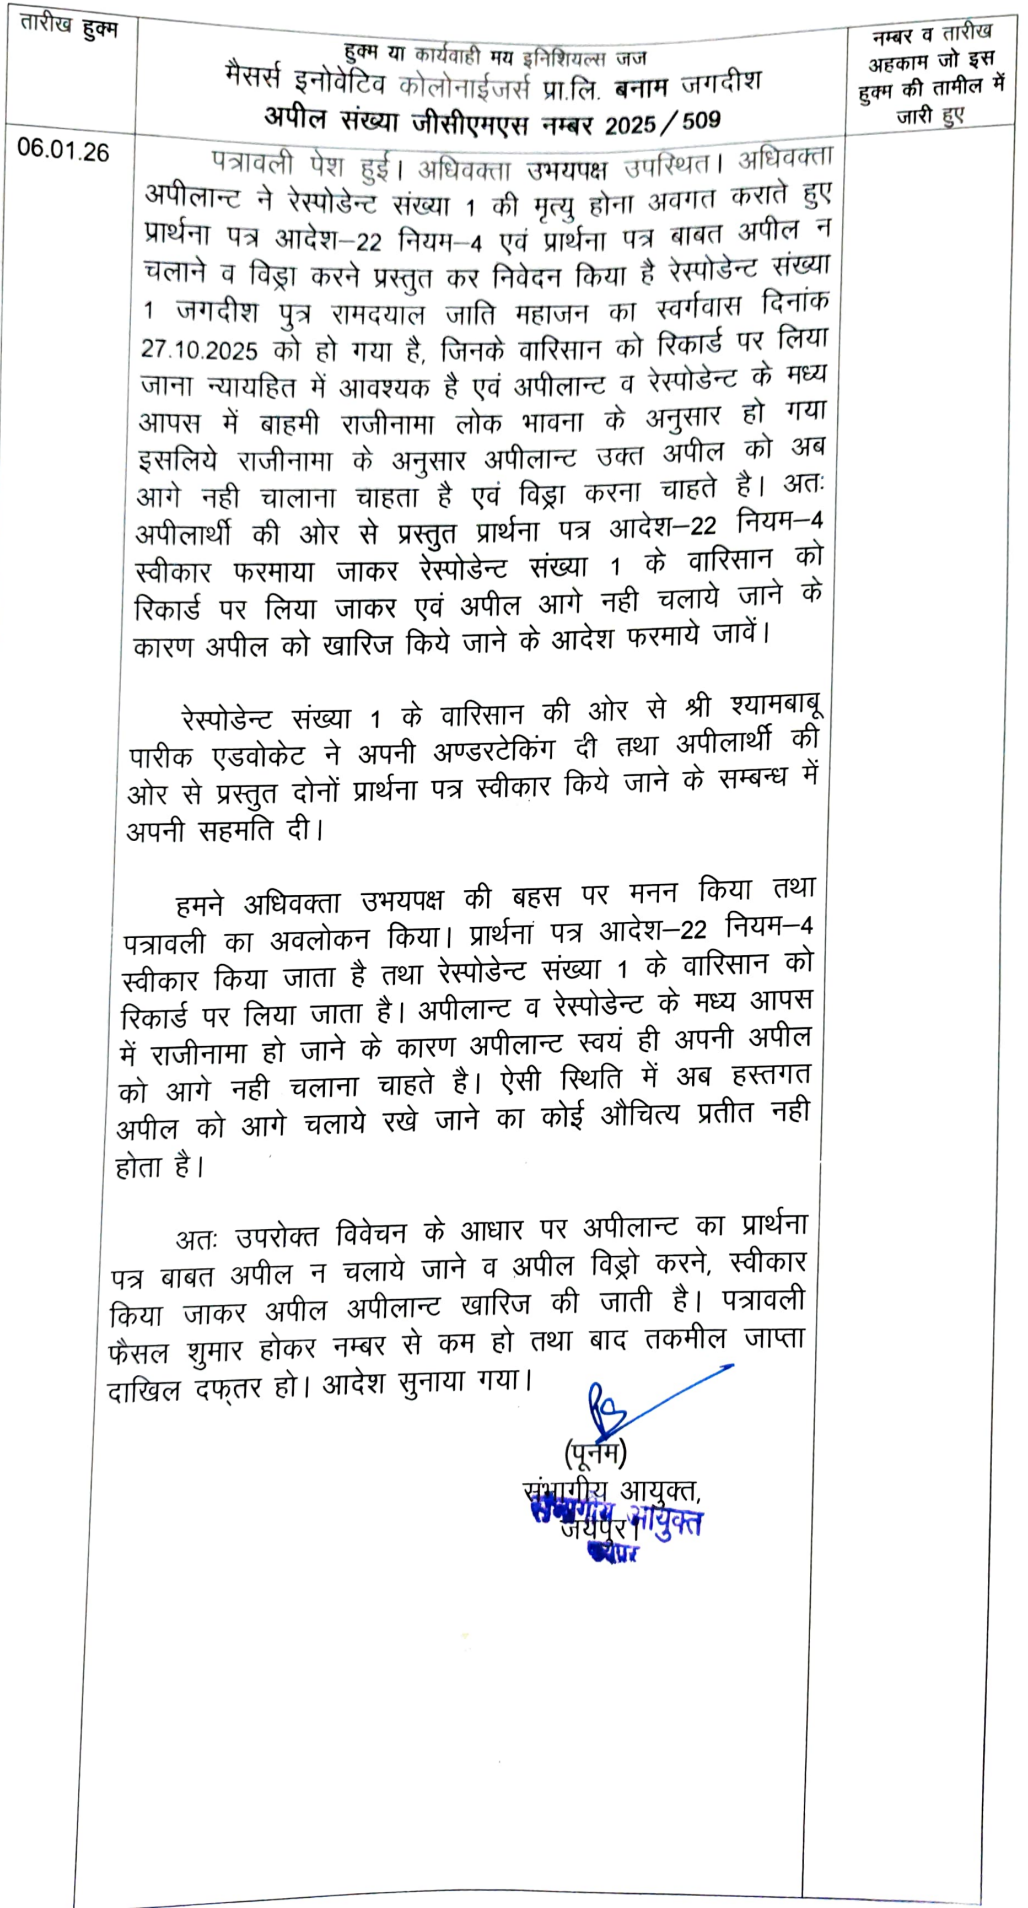 तारीख हुक्म
हुक्म या कार्यवाही मय इनिशियल्स जज
मैसर्स इनोवेटिव कोलोनाईजर्स प्रा.लि. बनाम जगदीश
अपील संख्या जीसीएमएस नम्बर 2025/509
नम्बर व तारीख
अहकाम जो इस
हुक्म की तामील में
जारी हुए
06.01.26
पत्रावली पेश हुई। अधिवक्ता उभयपक्ष उपस्थित। अधिवक्ता
अपीलान्ट ने रेस्पोडेन्ट संख्या 1 की मृत्यु होना अवगत कराते हुए
प्रार्थना पत्र आदेश–22 नियम–4 एवं प्रार्थना पत्र बाबत अपील न
चलाने व विड्रा करने प्रस्तुत कर निवेदन किया है रेस्पोडेन्ट संख्या
1 जगदीश पुत्र रामदयाल जाति महाजन का स्वर्गवास दिनांक
27.10.2025 को हो गया है, जिनके वारिसान को रिकार्ड पर लिया
जाना न्यायहित में आवश्यक है एवं अपीलान्ट व रेस्पोडेन्ट के मध्य
आपस में बाहमी राजीनामा लोक भावना के अनुसार हो गया
इसलिये राजीनामा के अनुसार अपीलान्ट उक्त अपील को अब
आगे नही चालाना चाहता है एवं विड्रा करना चाहते है। अतः
अपीलार्थी की ओर से प्रस्तुत प्रार्थना पत्र आदेश–22 नियम–4
स्वीकार फरमाया जाकर रेस्पोडेन्ट संख्या 1 के वारिसान को
रिकार्ड पर लिया जाकर एवं अपील आगे नही चलाये जाने के
कारण अपील को खारिज किये जाने के आदेश फरमाये जावें।
रेस्पोडेन्ट संख्या 1 के वारिसान की ओर से श्री श्यामबाबू
पारीक एडवोकेट ने अपनी अण्डरटेकिंग दी तथा अपीलार्थी की
ओर से प्रस्तुत दोनों प्रार्थना पत्र स्वीकार किये जाने के सम्बन्ध में
अपनी सहमति दी।
हमने अधिवक्ता उभयपक्ष की बहस पर मनन किया तथा
पत्रावली का अवलोकन किया। प्रार्थना पत्र आदेश–22 नियम–4
स्वीकार किया जाता है तथा रेस्पोडेन्ट संख्या 1 के वारिसान को
रिकार्ड पर लिया जाता है। अपीलान्ट व रेस्पोडेन्ट के मध्य आपस
में राजीनामा हो जाने के कारण अपीलान्ट स्वयं ही अपनी अपील
को आगे नही चलाना चाहते है। ऐसी स्थिति में अब हस्तगत
अपील को आगे चलाये रखे जाने का कोई औचित्य प्रतीत नही
होता है।
अतः उपरोक्त विवेचन के आधार पर अपीलान्ट का प्रार्थना
पत्र बाबत अपील न चलाये जाने व अपील विड्रो करने, स्वीकार
किया जाकर अपील अपीलान्ट खारिज की जाती है। पत्रावली
फैसल शुमार होकर नम्बर से कम हो तथा बाद तकमील जाप्ता
दाखिल दफ्तर हो। आदेश सुनाया गया।
(पूनम)
संभागीय आयुक्त,
संभागीय आयुक्त
जयपुर।
जयपुर